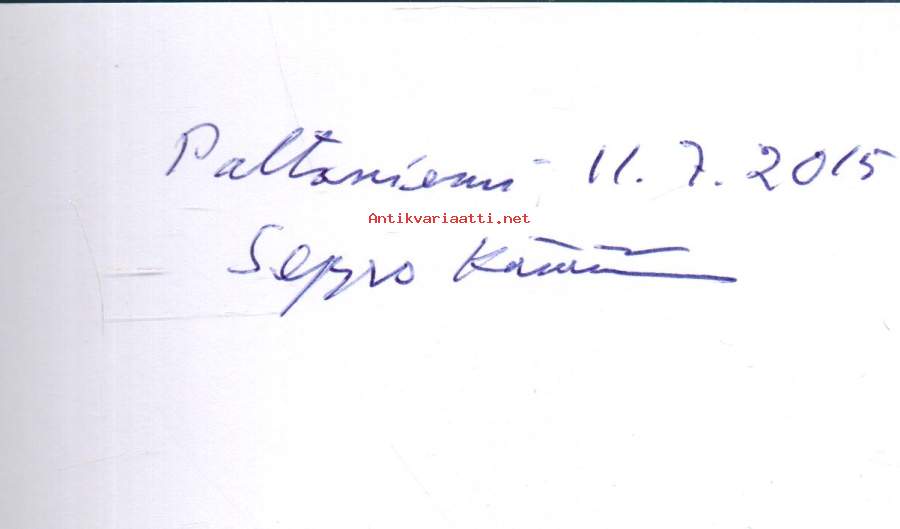 Paltaniemi 11.7.2015
Antikvariaatti.net
Seppo